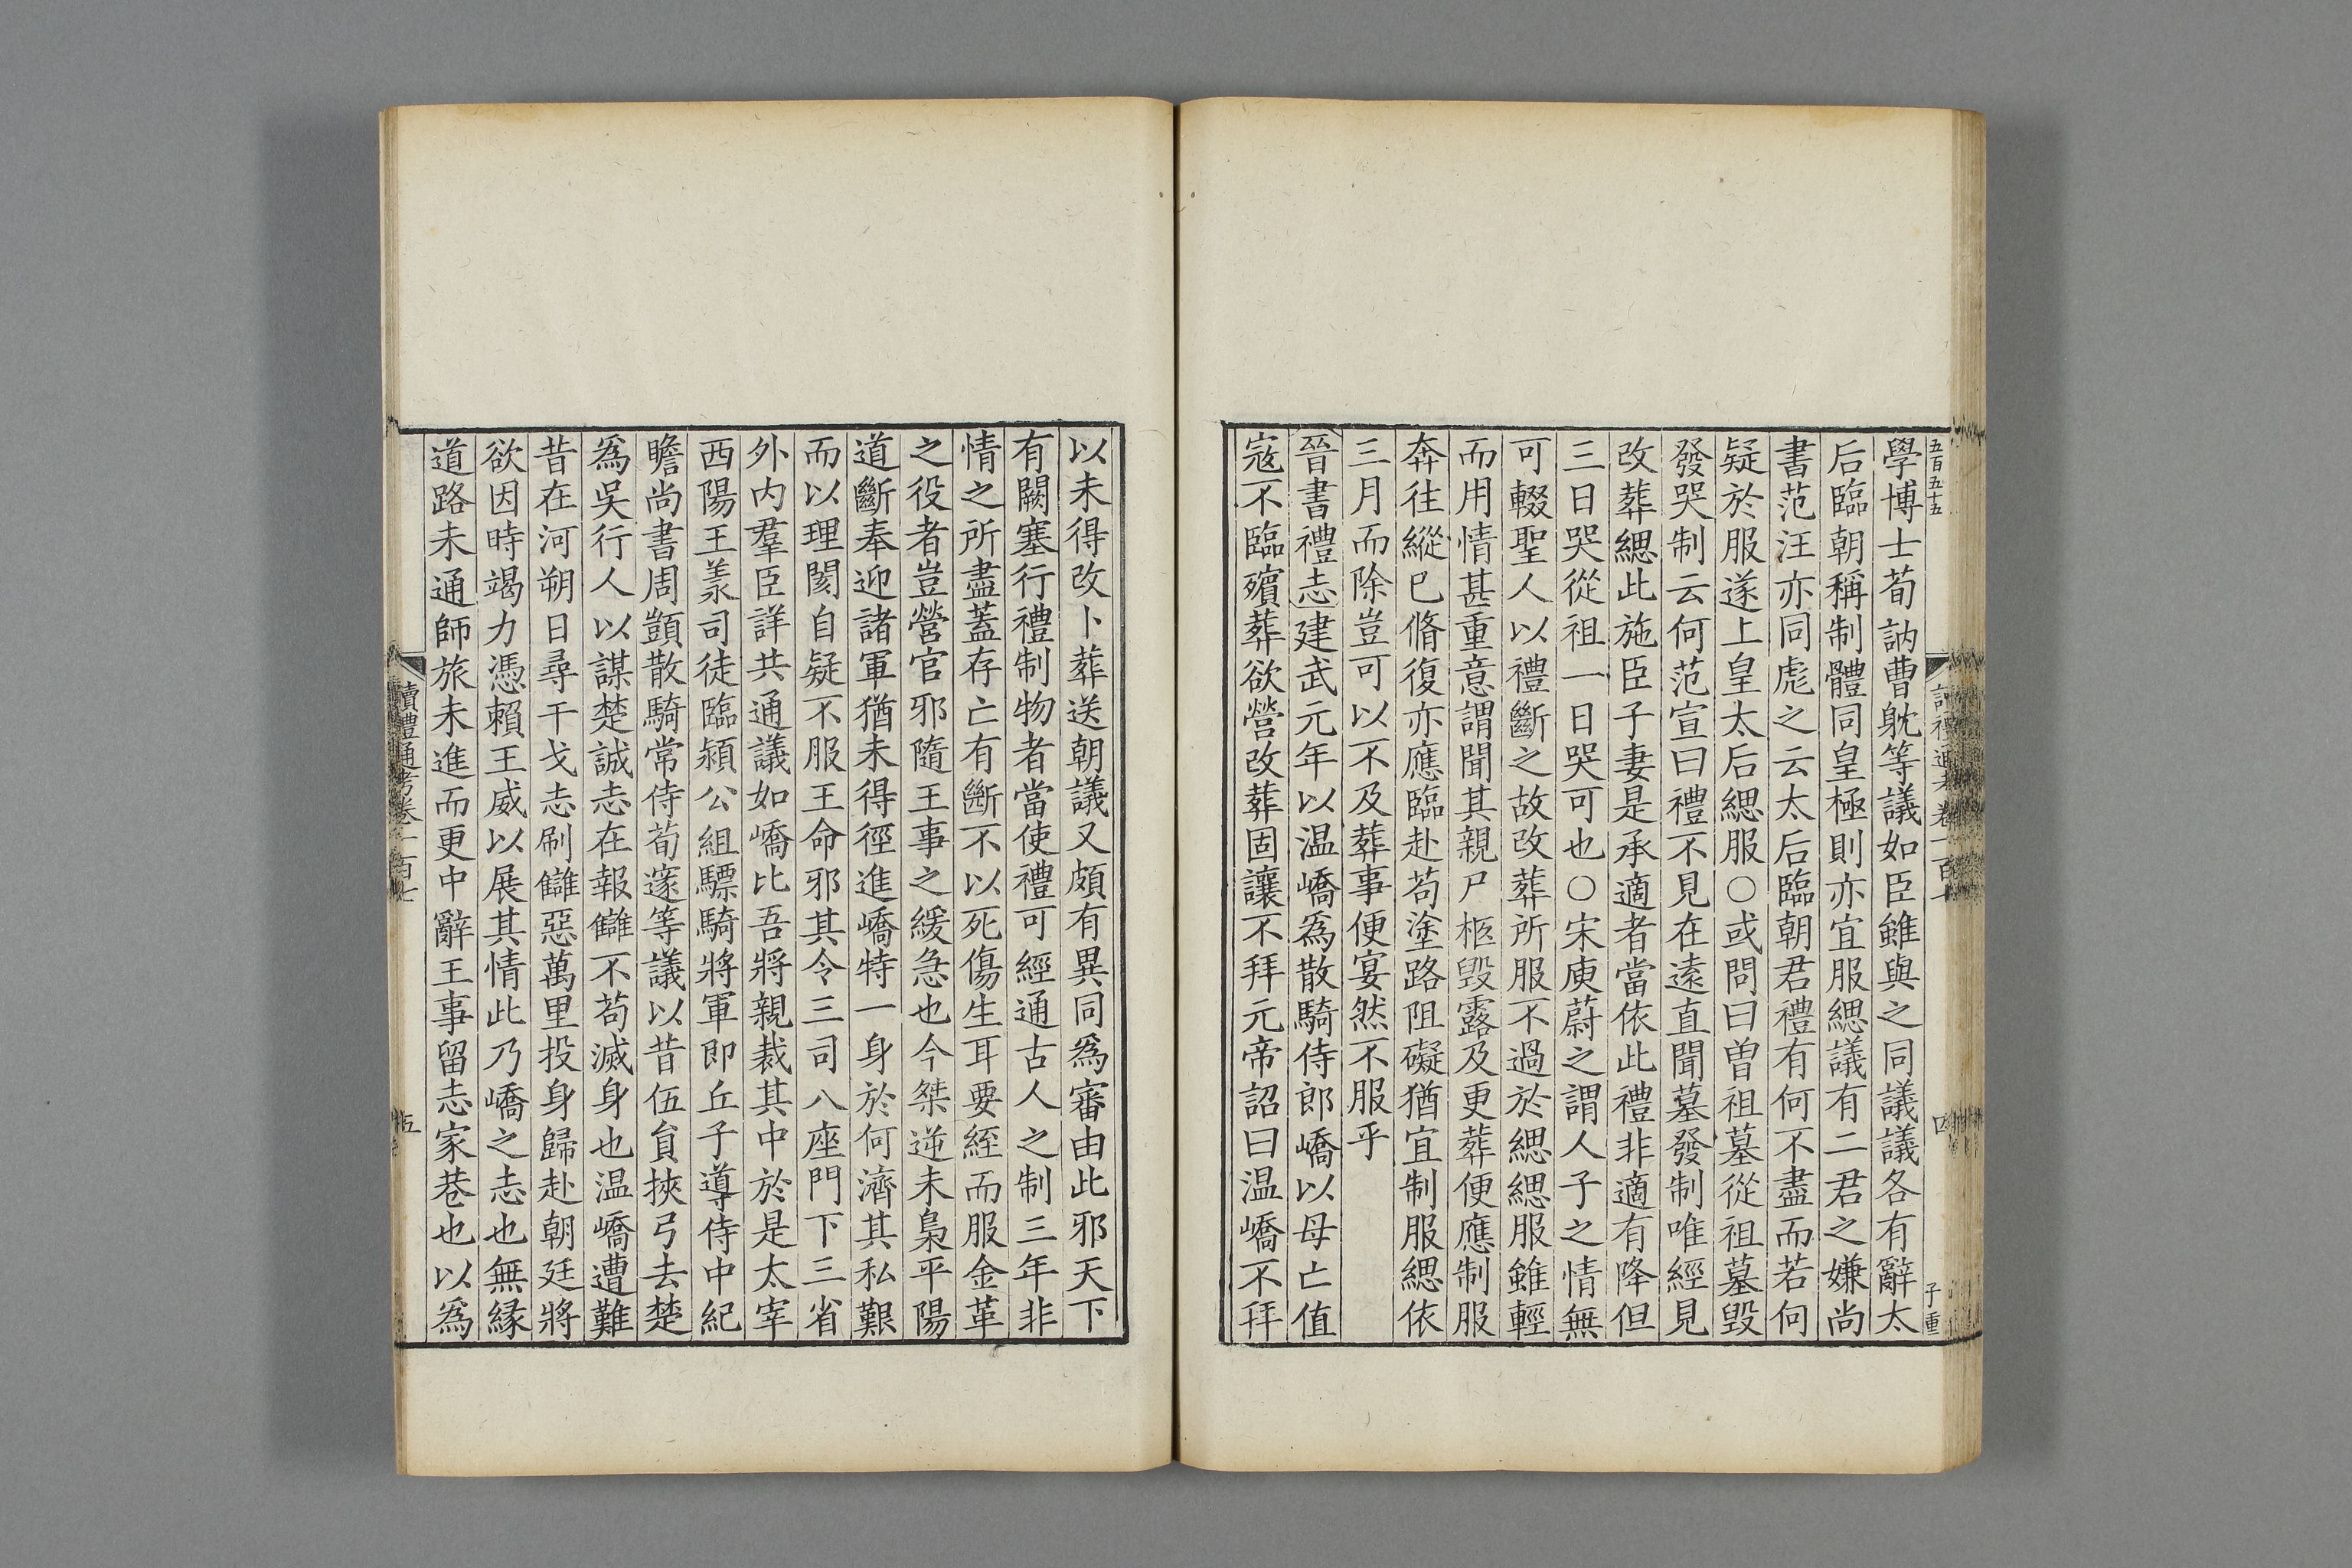 五百五十五
學博士荀訥曹躭等議如臣雖與之同議議各有辭太
后臨朝稱制體同皇極則亦宜服緦議有二君之嫌尚
書范汪亦同彪之云太后臨朝君禮有何不盡而若何
疑於服遂上皇太后緦服○或問曰曽祖墓從祖墓毀
發哭制云何范宣曰禮不見在遠直聞墓發制唯經見
改葬緦此施臣子妻是承適者當依此禮非適有降但
三日哭從祖一日哭可也○宋庾蔚之謂人子之情無
可輟聖人以禮斷之故改葬所服不過於緦緦服雖輕
而用情甚重意謂聞其親尸柩毀露及更葬便應制服
奔往縱已脩復亦應臨赴苟塗路阻礙猶宜制服緦依
三月而除豈可以不及葬事便宴然不服乎
晉書禮志建武元年以温嶠爲散騎侍郎嶠以母亡值
寇不臨殯葬欲營改葬固讓不拜元帝詔曰温嶠不拜
四
子重
以未得改卜葬送朝議又頗有異同爲審由此邪天下
有闕塞行禮制物者當使禮可經通古人之制三年非
情之所盡蓋存亡有斷不以死傷生耳要絰而服金革
之役者豈營官邪隨王事之緩急也今桀逆未梟平陽
道斷奉迎諸軍猶未得徑進嶠特一身於何濟其私艱
而以理閡自疑不服王命邪其令三司八座門下三省
外内羣臣詳共通議如嶠比吾將親裁其中於是太宰
西陽王羕司徒臨潁公組驃騎將軍即丘子導侍中紀
瞻尚書周顗散騎常侍荀邃等議以昔伍員挾弓去楚
爲吳行人以謀楚誠志在報讎不苟滅身也温嶠遭難
昔在河朔日尋干戈志刷讎惡萬里投身歸赴朝廷將
欲因時竭力憑賴王威以展其情此乃嶠之志也無縁
道路未通師旅未進而更中辭王事留志家巷也以爲
讀禮通考卷一百七
五